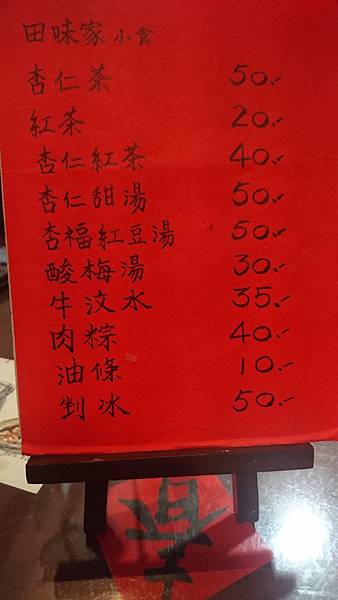 田味家 小食
杏仁茶 50.-
紅茶 20.-
杏仁紅茶 40.-
杏仁甜湯 50.-
杏福紅豆湯 50.-
酸梅湯 30.-
牛汶水 35.-
肉粽 40.-
油條 10.-
剉冰 50.-
春